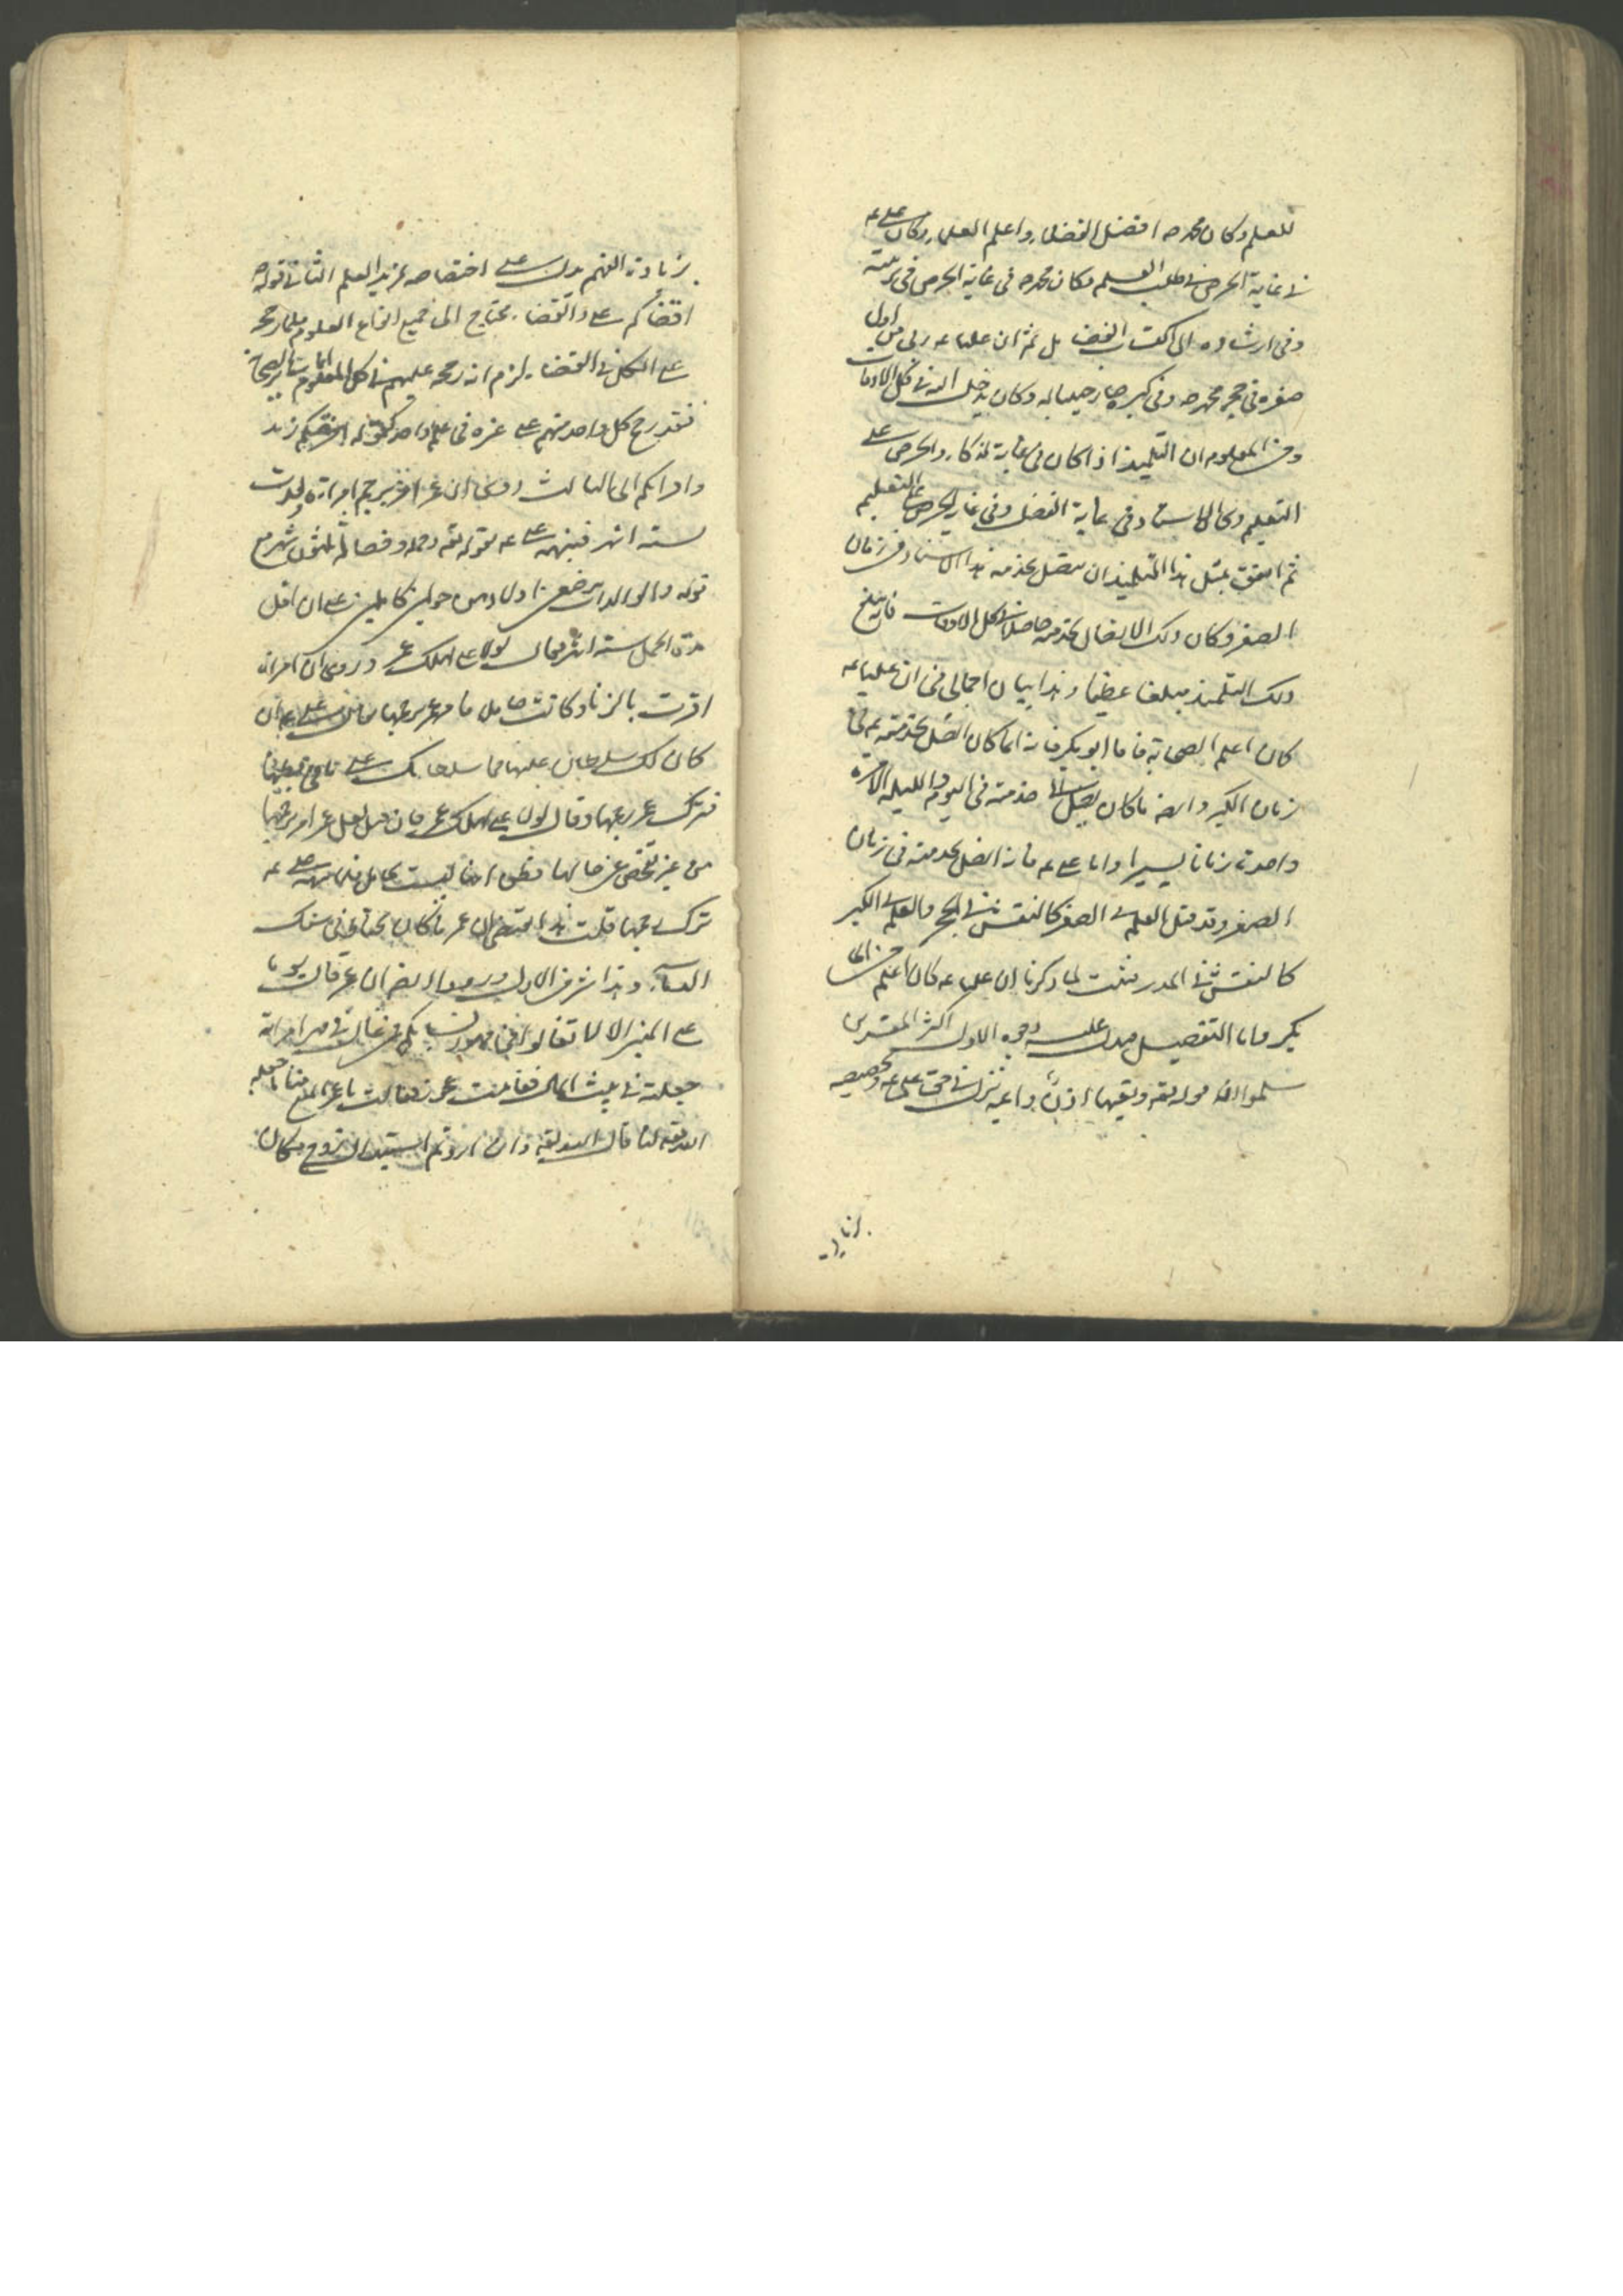 للعلم وكان محمد صه افضل الفضلا، واعلم العلما، وكان على عه
فى غاية الحرص فى طلب العلم وكان محمد صه فى غاية الحرص فى تربيته
وفى ارشاده الى اكتساب الفضايل ثم ان عليا عه ربى من اول
صغره فى حجر محمد صه وفى كبره صار ختنا له وكان يدخل اليه فى كل الاوقات
ومن المعلوم ان التلميذ اذا كان فى غاية الذكا، والحرص على
التعلم وكان الاستاد فى غاية الفضل وفى غاية الحرص على التعليم
ثم اتفق بمثل هذا التلميذ ان يتصل بخدمة هذا الاستاد فى زمان
الصغر وكان ذلك الاتصال بخدمته حاصلا فى كل الاوقات فانه يبلغ
ذلك التلميذ مبلغا عظيما وهذا بيان اجمالى فى ان عليا عه
كان اعلم الصحابة فاما ابو بكر فانه انما كان اتصل بخدمته عه فى
زمان الكبر وايضا ما كان يصل الى خدمته فى اليوم والليله الا مرة
واحدة زمانا يسيرا واما على عه فانه اتصل بخدمته فى زمان
الصغر وقد قيل العلم فى الصغر كالنقش فى الحجر والعلم فى الكبر
كالنقش فى المدر فثبت لما ذكرنا ان عليا عه كان اعلم من ابى
بكر واما التفصيل فيدل عليه وجوه الاول اكثر المفسرين
سلموا ان قوله تعه وتعيها اذن واعيه نزل فى حق على عه وتخصيصه
بزيادة
بزيادة الفهم يدل على اختصاصه بمزيد العلم الثانى قوله صه
اقضاكم على والقضا، يحتاج الى جميع انواع العلوم فلما رجحه
على الكل فى القضا، لزم انه رجحه عليهم فى كل العلوم اما ساير الصحابة
فقد رجح كل واحد منهم على غيره فى علم واحد كقوله افرضكم زيد
واقراكم ابى الثالث روى ان عمر امر برجم امراة ولدت
لستة اشهر فنبهه على عه بقوله تعه وحمله وفصاله ثلثون شهرا مع
قوله والوالدات يرضعن اولادهن حولين كاملين على ان اقل
مدة الحمل ستة اشهر فقال لولا على لهلك عمر وروى ان امراة
اقرت بالزنا وكانت حامل فامر عمر برجمها فقال على عه ان
كان لك سلطان عليها فما سلطانك على ما فى بطنها
فترك عمر رجمها وقال لولا على لهلك عمر فان قيل لعل عمر امر برجمها
من غير تفحص عن حالها فظن انها ليست بحامل فلما نبهه على عه
ترك رجمها قلت هذا يقتضى ان عمر ما كان يحتاط فى سفك
الدماء، وهذا شر من الاول وروى ايضا ان عمر قال يوما
على المنبر الا لا تغالوا فى مهور نسايكم فمن غالى فى مهر امراة
جعلته فى بيت المال فقامت عجوز فقالت يا عمر اتمنع منا ما جعله
الله تعه لنا قال الله تعه وان اردتم استبدال زوج مكان